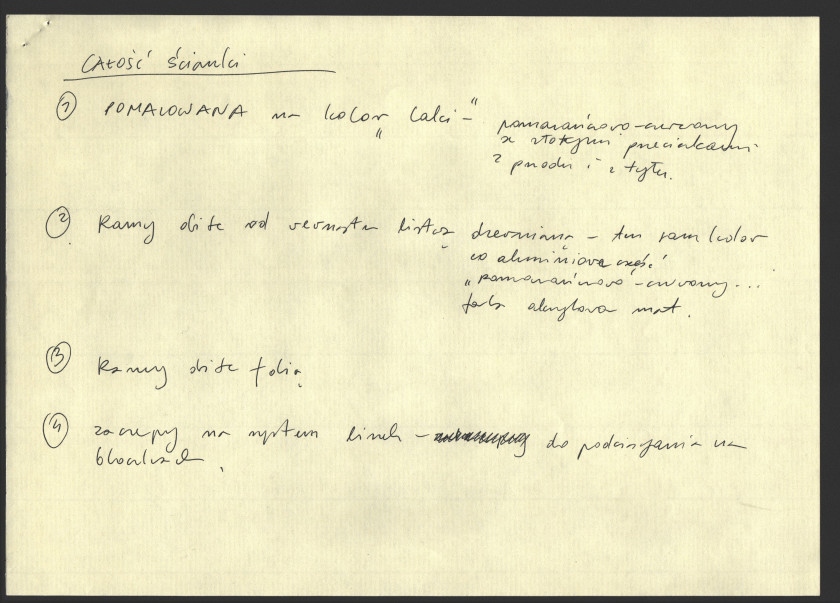 CAŁOŚĆ ścianki
① POMALOWANA na kolor "Calci-"
pomarańczowo-czerwony
z złotymi przecierkami
z przodu i z tyłu.
② Ramy obite od wewnątrz listwą drewnianą - ten sam kolor
co aluminiowa część
"pomarańczowo-czerwony...
farba akrylowa mat.
③ Ramy obite folią
④ zaczepy na system linek - do podciągania na
bloczkach.